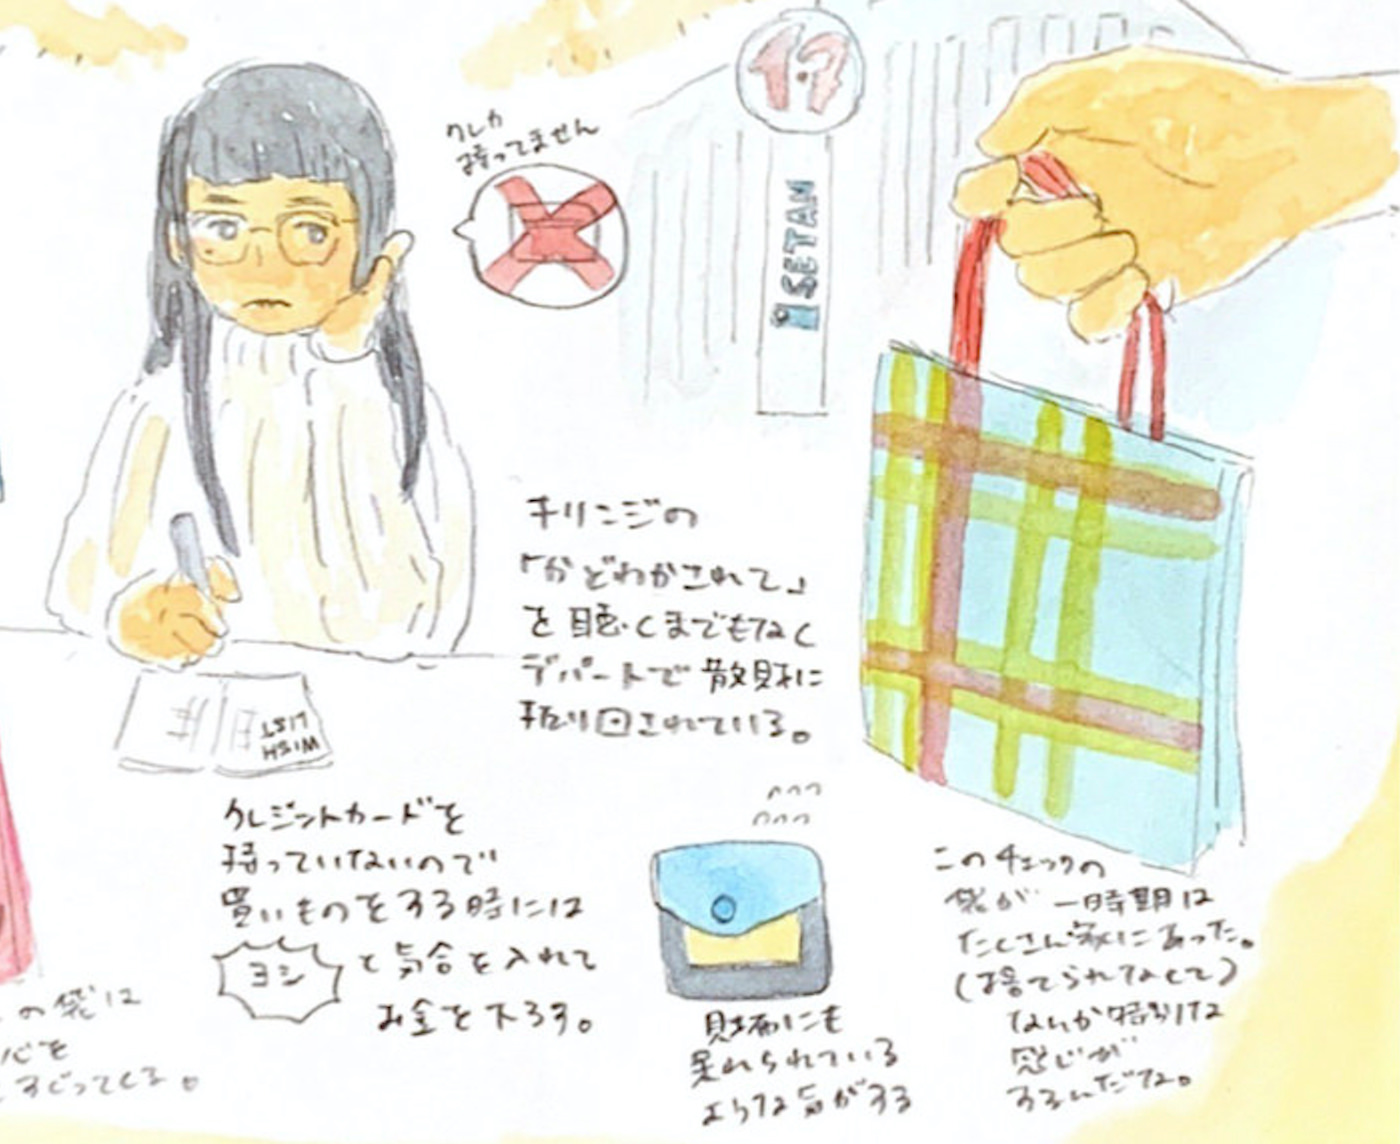 クレカ
持ってません
1・7
ISETAN
キリンジの
「かどわかされて」
を聴くまでもなく
デパートで散財に
振り回されている。
WISH
LIST
クレジットカードを
持っていないので
買いものをする時には
ヨシ と気合を入れて
お金を下ろす。
財布にも
呆れられている
ような気がする
このチェックの
袋が一時期は
たくさん家にあった。
(捨てられなくて)
なんか特別な
感じが
するんだな。
の袋は
心を
すぐってくる。